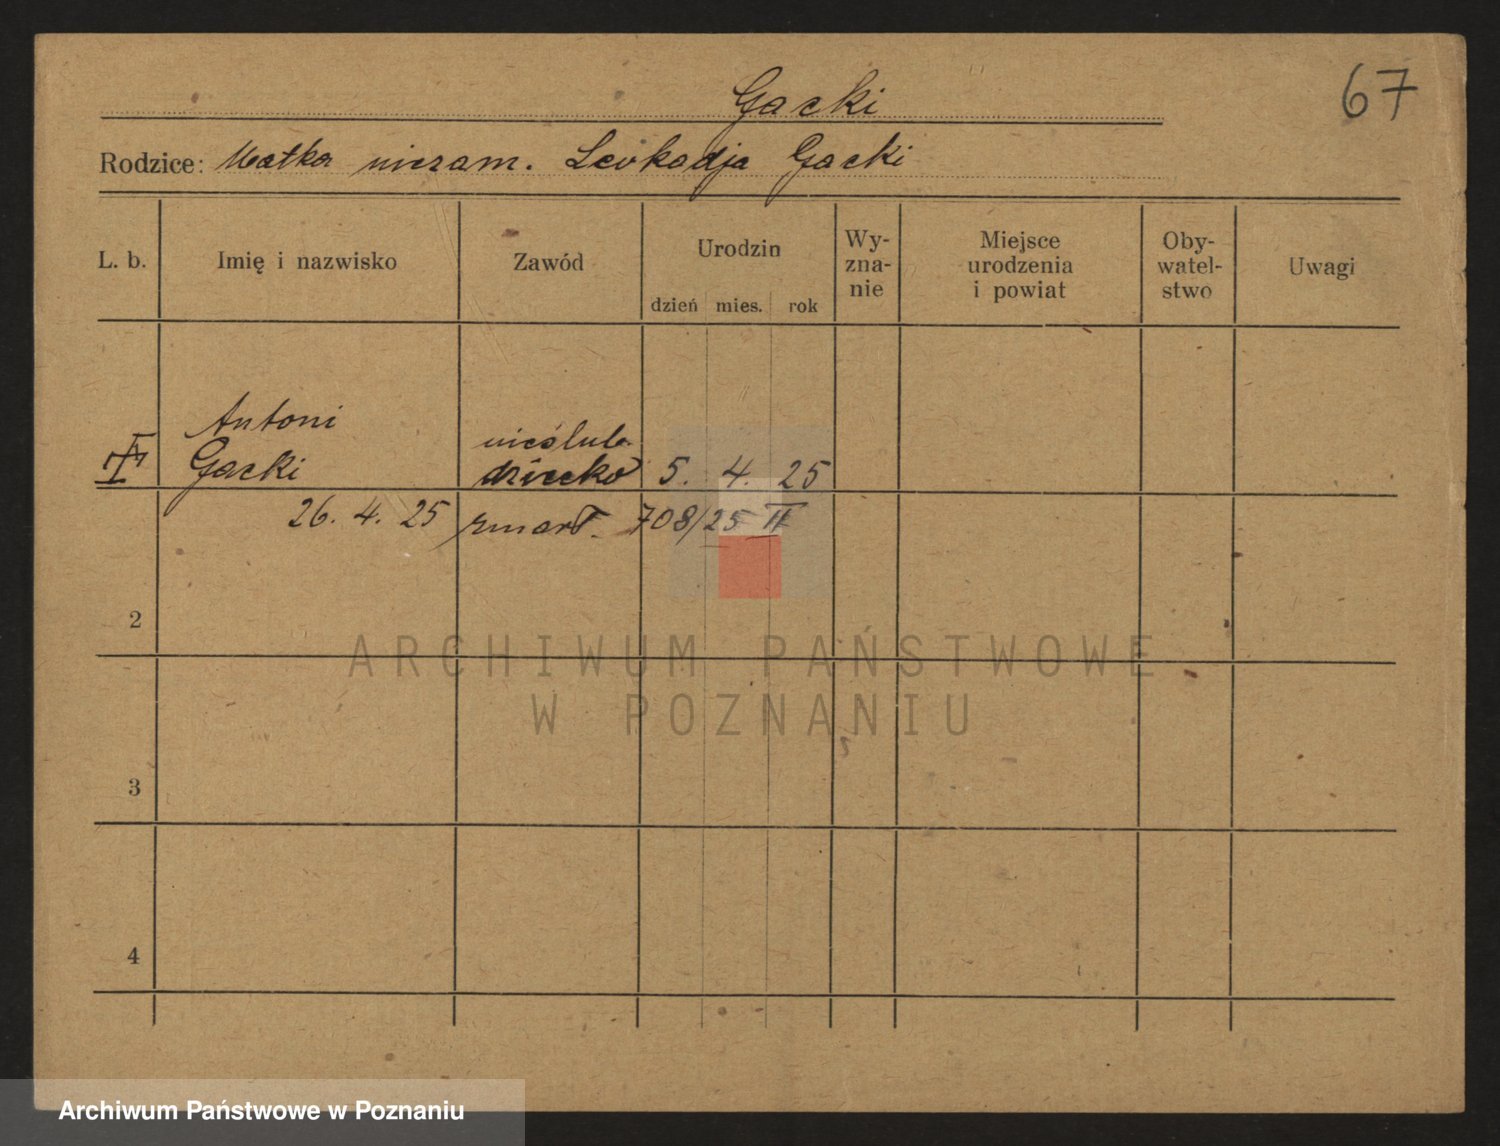 67
Gacki
Rodzice: Matka niezam. Leokadja Gacki
L. b. Imię i nazwisko Zawód Urodzin dzień mies. rok Wy-zna-nie Miejsce urodzenia i powiat Oby-watel-stwo Uwagi
Antoni
Gacki
nieślub.
dziecko 5. 4. 25
26. 4. 25 zmarł. 708/25 II
2
3
4
ARCHIWUM PAŃSTWOWE
W POZNANIU
Archiwum Państwowe w Poznaniu